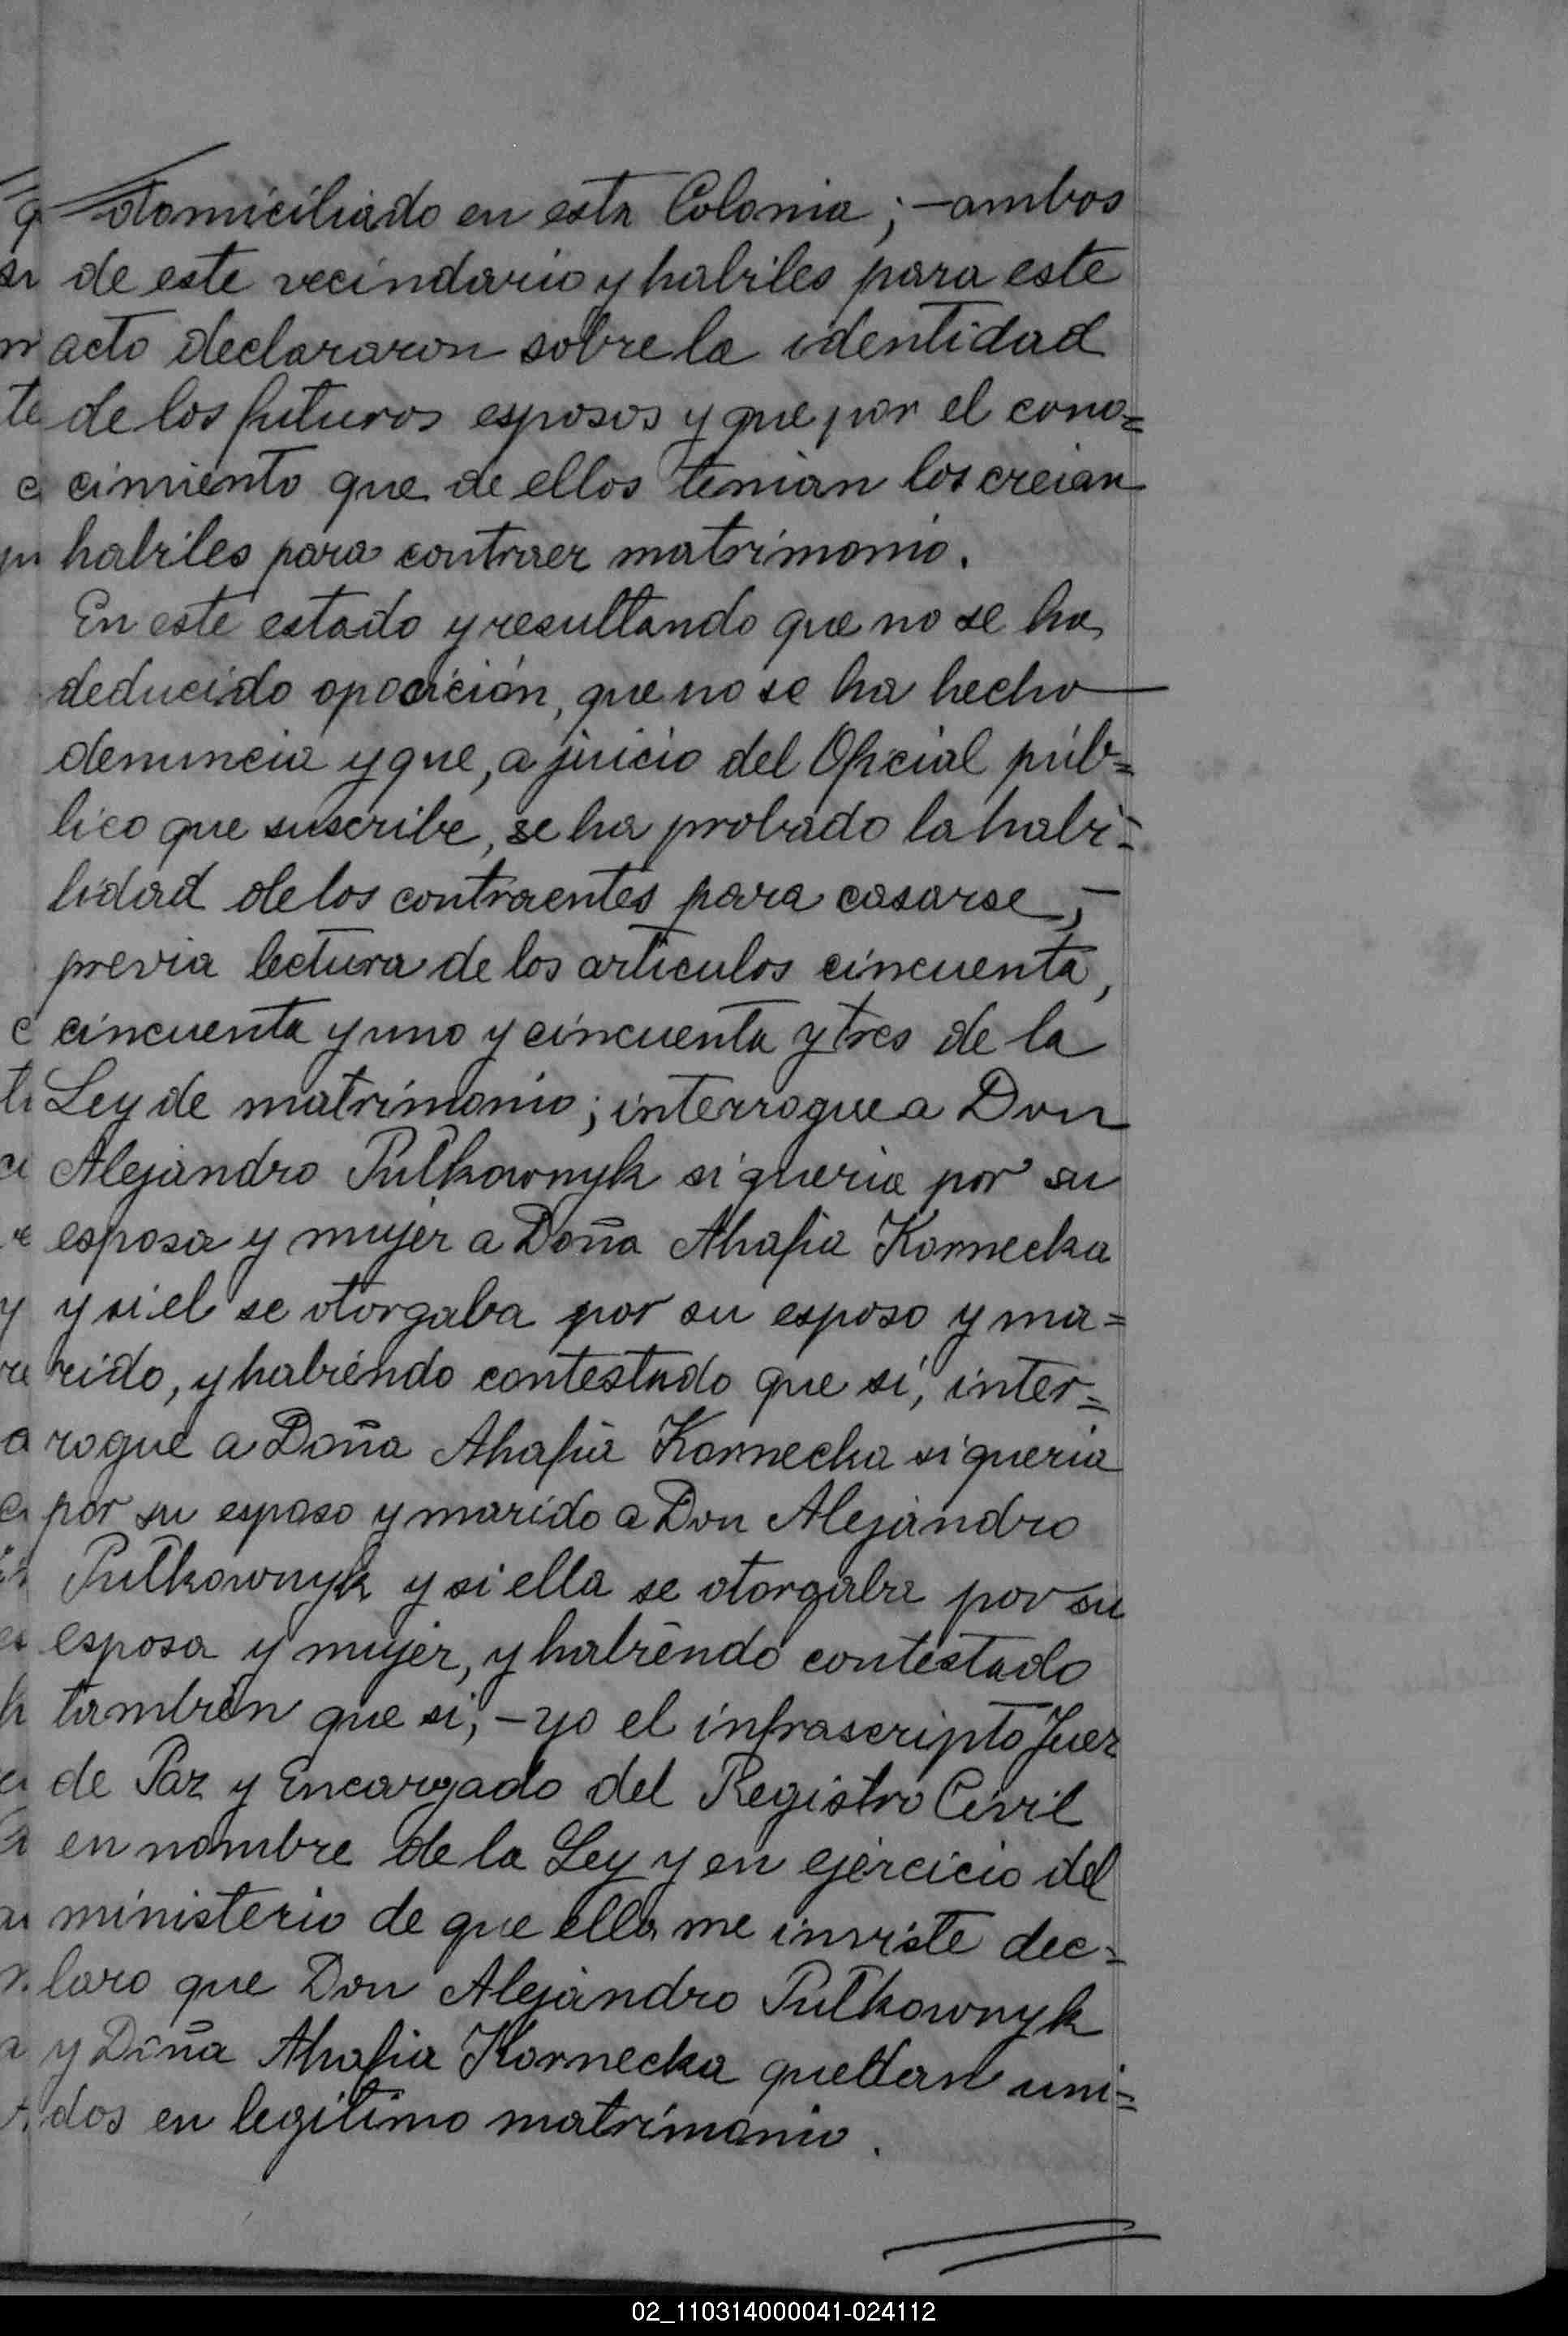 domiciliado en esta Colonia; – ambos
de este vecindario y habiles para este
acto declararon sobre la identidad
de los futuros esposos y que por el cono=
cimiento que de ellos tenian los creian
habiles para contraer matrimonio.
En este estado y resultando que no se ha
deducido oposición, que no se ha hecho —
denuncia y que, a juicio del Oficial púb=
lico que suscribe, se ha probado la habi=
lidad de los contraentes para casarse, –
previa lectura de los articulos cincuenta,
cincuenta y uno y cincuenta y tres de la
Ley de matrimonio; interrogue a Don
Alejandro Pułkownyk si queria por su
esposa y mujer a Doña Ahafia Kornecka
y si el se otorgaba por su esposo y ma=
rido, y habiendo contestado que si, inter=
rogue a Doña Ahafia Kornecka si queria
por su esposo y marido a Don Alejandro
Pułkownyk y si ella se otorgaba por su
esposa y mujer, y habiendo contestado
tambien que si, – yo el infrascripto Juez
de Paz y Encargado del Registro Civil
en nombre de la Ley y en ejercicio del
ministerio de que ella me inviste dec=
laro que Don Alejandro Pułkownyk
y Doña Ahafia Kornecka quedan uni=
dos en legitimo matrimonio.
02_110314000041-024112